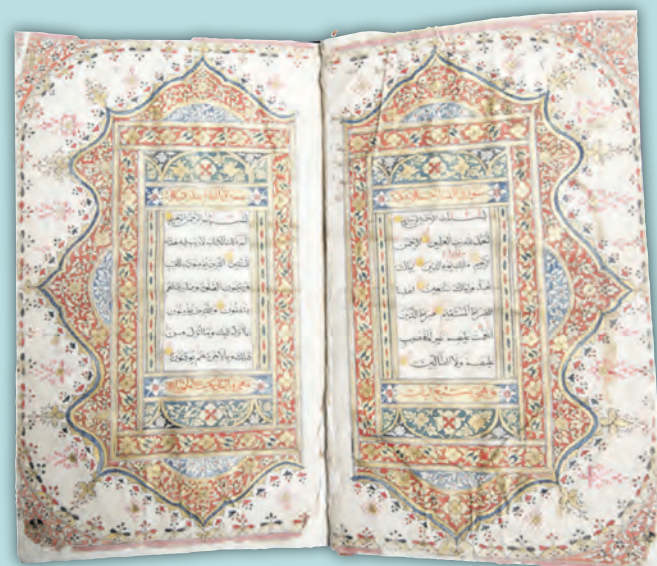 بسم الله الرحمن الرحيم
الحمد لله رب العلمين الرحمن
الرحيم ملك يوم الدين اياك
نعبد واياك نستعين اهدنا
الصراط المستقيم صراط الذين
انعمت عليهم غير المغضوب
عليهم ولا الضالين
بسم الله الرحمن الرحيم
الم ذلك الكتاب لا ريب فيه هدى
للمتقين الذين يؤمنون بالغيب
ويقيمون الصلوة ومما رزقناهم
ينفقون والذين يؤمنون
بما انزل اليك وما انزل من
قبلك وبالاخرة هم يوقنون